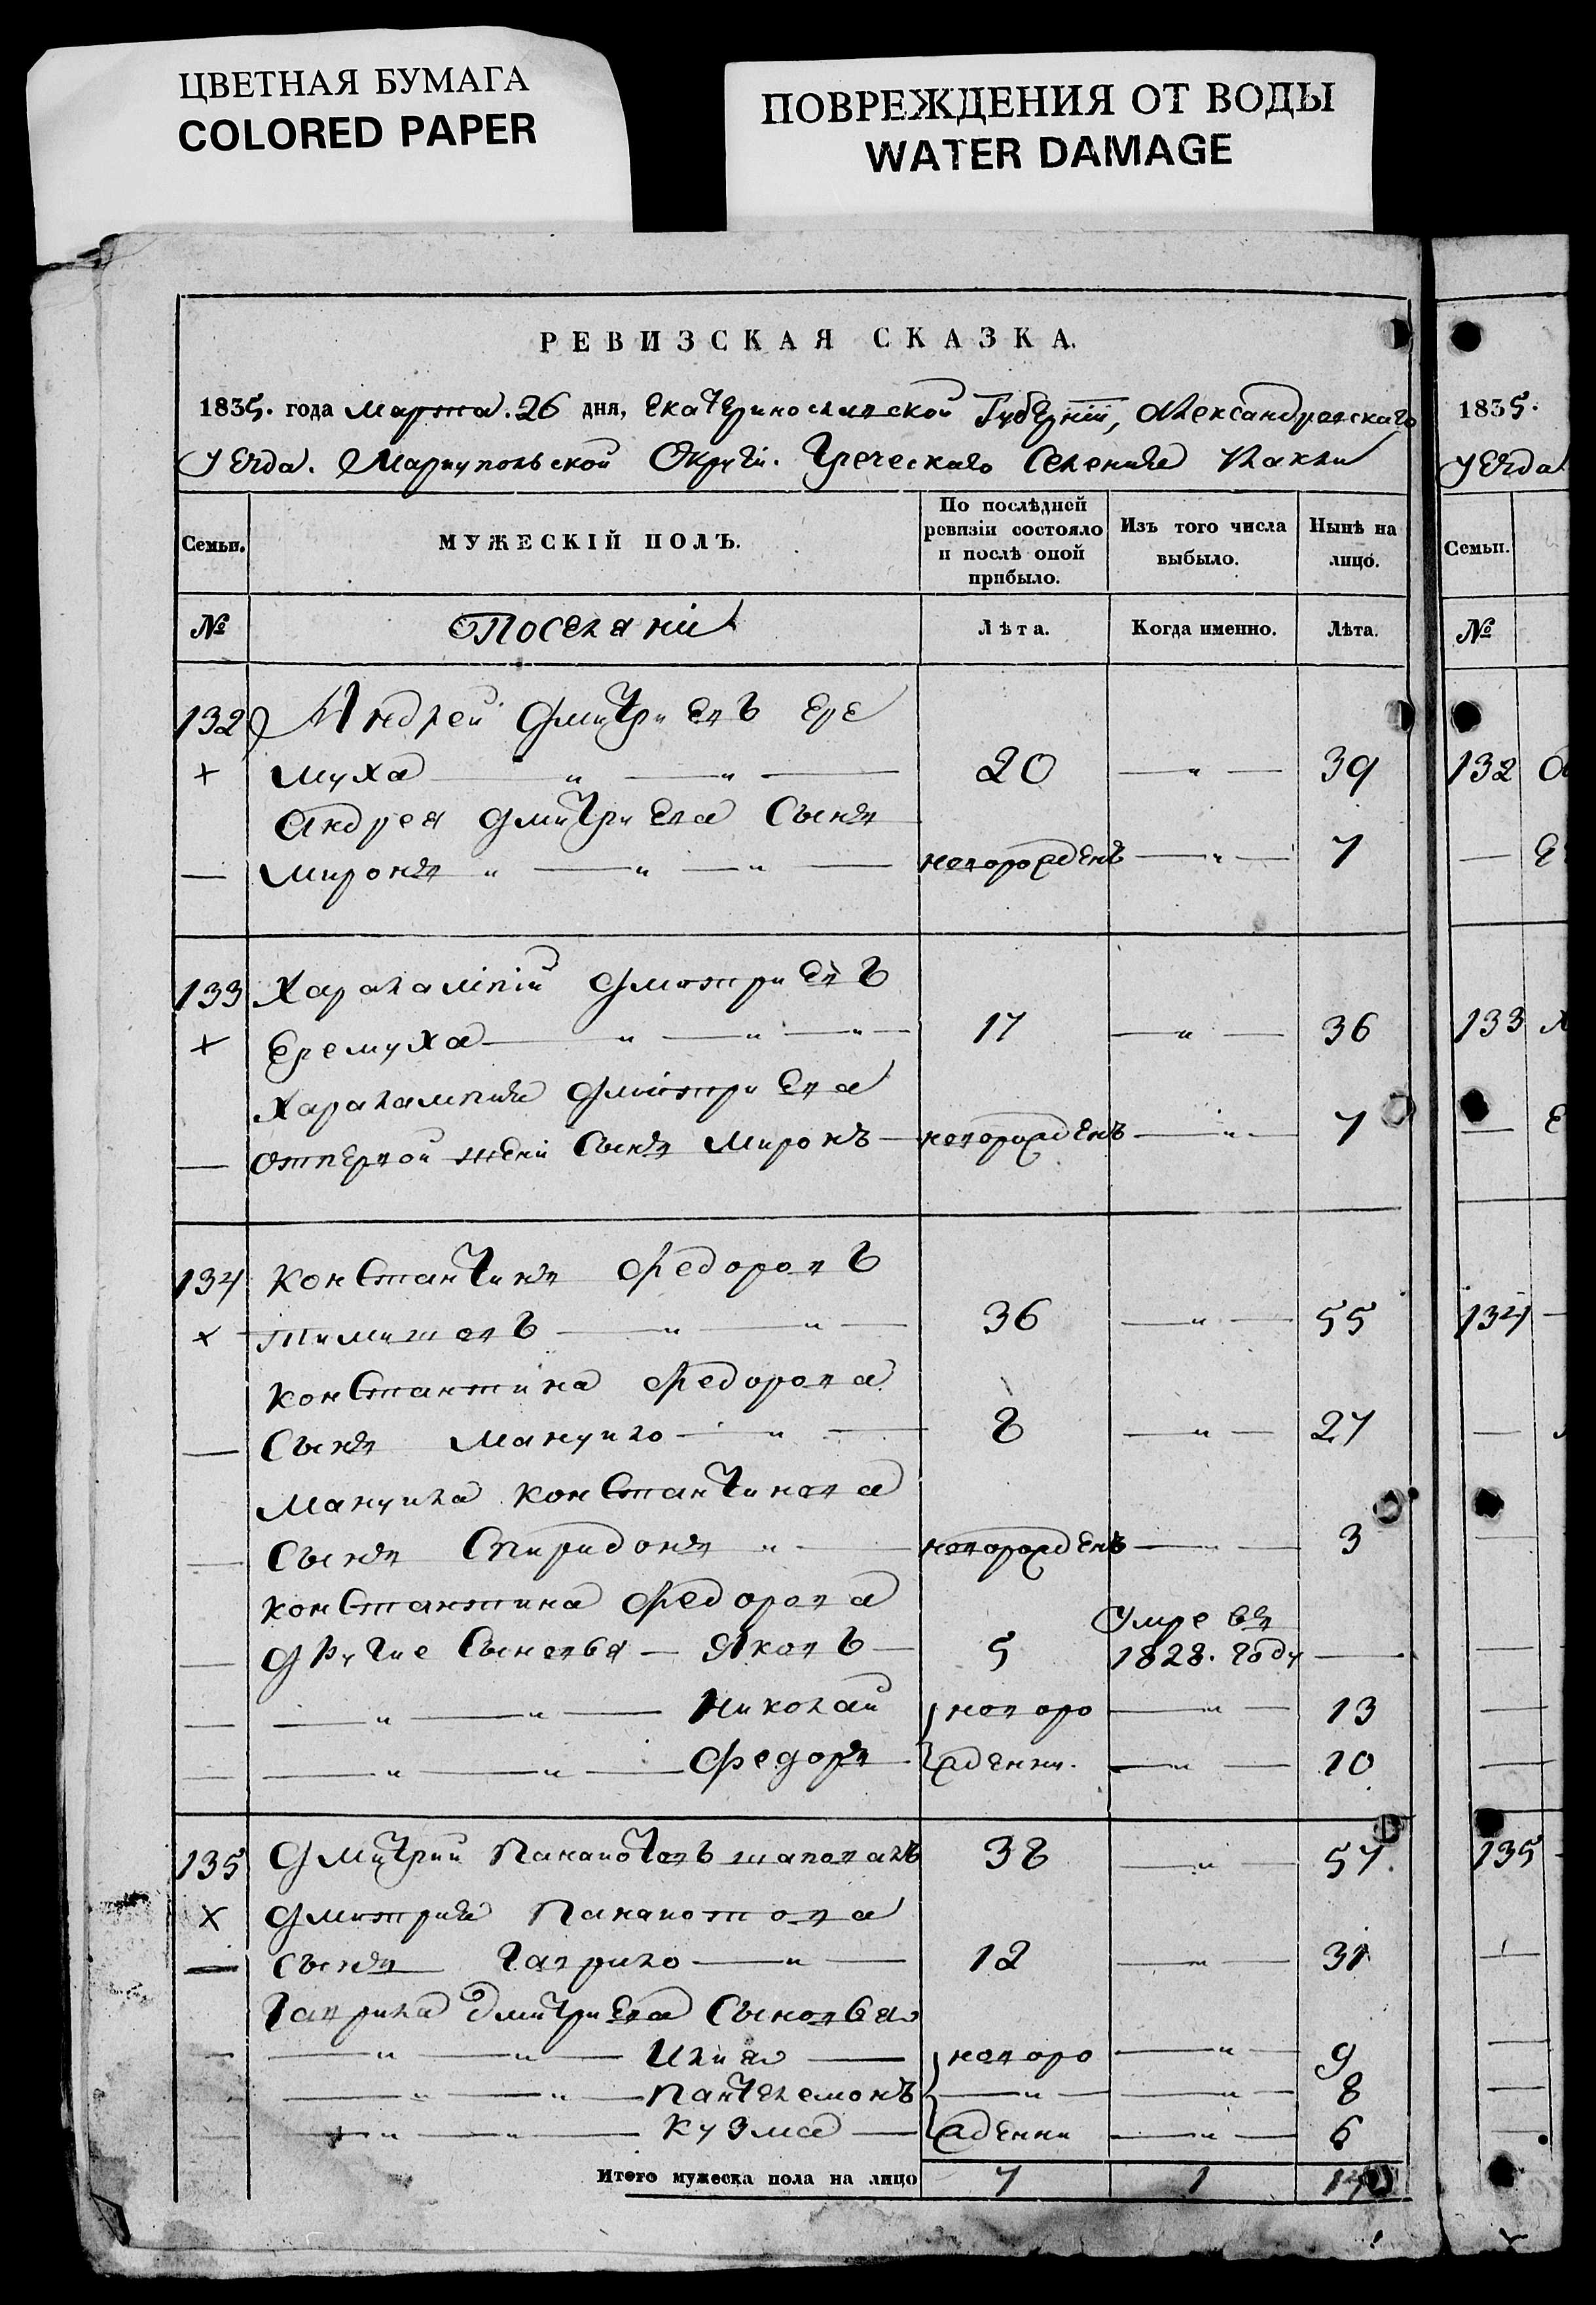 ЦВЕТНАЯ БУМАГА
COLORED PAPER
ПОВРЕЖДЕНИЯ ОТ ВОДЫ
WATER DAMAGE
РЕВИЗСКАЯ СКАЗКА.
1835. года Марта. 26 дня, Екатеринославской Губерніи, Александровскаго
Уезда. Мариупольской Округи. Греческаго Селения
Семьи. МУЖЕСКІЙ ПОЛЪ. По послѣдней ревизіи состояло и послѣ оной прибыло. Изъ того числа выбыло. Нынѣ на лицо.
№ Поселяни Лѣта. Когда именно. Лѣта.
132) Андрей Дмитриевъ Ере
× муха — " — " — 20 — " — 39
Андрея Дмитриева Сынъ
— Миронъ " — " — " — новорожденъ — " — 7
133 Харалампій Дмитриевъ
× Еремуха — " — " — " — 17 — " — 36
Харалампия Дмитриева
— отпервой жени Сынъ Миронъ — новорожденъ — " — 7
134 Константинъ Федоровъ
× Тимишевъ — " — " — 36 — " — 55
Константина Федорова
— Сынъ Мануило — " — 8 — " — 27
Мануила Константинова
— Сынъ Спиридонъ " — новорожденъ — " — 3
Константина Федорова
— Другие Сыновья — Яковъ — 5 Умре въ 1828. году —
— — " — " — Николай } новоро — " — 13
— — " — " — Федоръ } жденни. — " — 10
135 Дмитрий Панаиотовъ Шаповалъ 38 — " — 57.
× Дмитрия Панаиотова
— Сынъ Гаврило — " — 12 — " — 31
Гаврила Дмитриева Сыновья
— — " — " — Илия — } новоро — " — 9
— " — " — Пантелемонъ — " — — " — 8
— — " — " — Кузма — } жденни — " — 6
Итого мужеска пола на лицо 7 1
1835.
Уезда
Семьи.
№
132
133
134
135